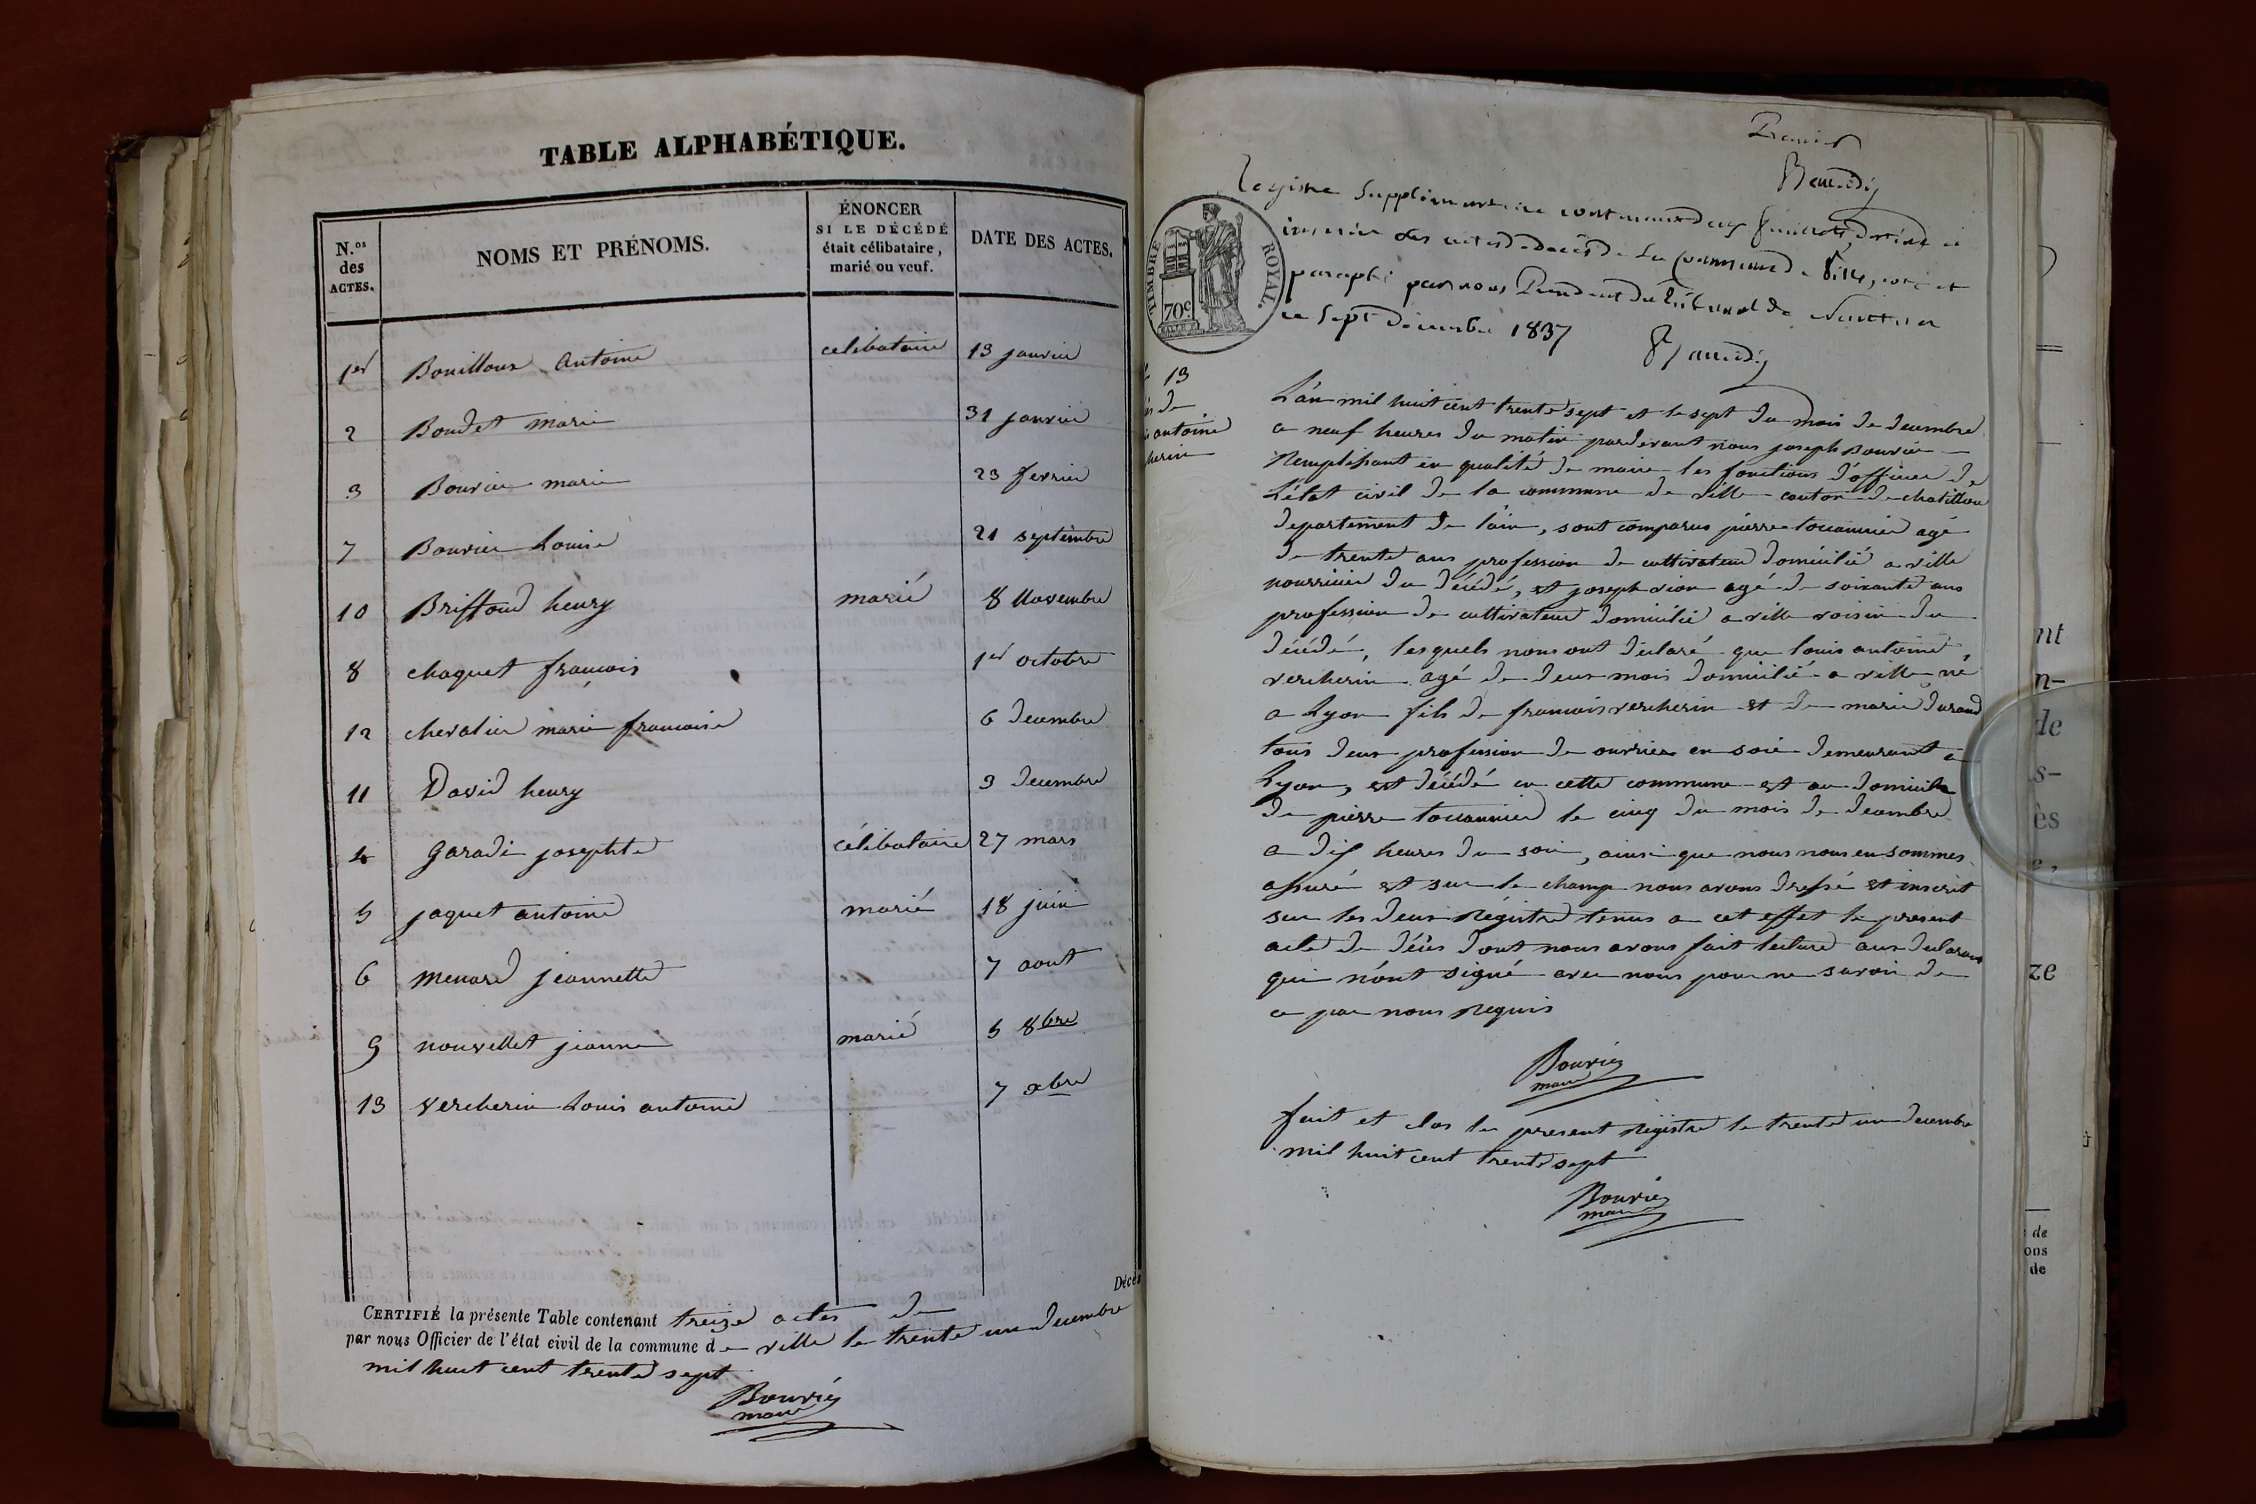 TABLE ALPHABÉTIQUE.
N.os des ACTES.
NOMS ET PRÉNOMS.
ÉNONCER SI LE DÉCÉDÉ était célibataire, marié ou veuf.
DATE DES ACTES.
1er Bouilloux Antoine celibataire 13 janvier
2 Boudet marie 31 janvier
3 Bouvier marie 23 fevrier
7 Bouvier Louise 21 septembre
10 Briffoud henry marié 8 Novembre
8 chaquet francois 1er octobre
12 chevalier marie francoise 6 decembre
11 David henry 3 decembre
4 Garadi josephte célibataire 27 mars
5 jaquet antoine marié 18 juin
6 menard jeannette 7 aout
9 nouvellet jeanne marié 5 8bre
13 vercherin Louis antoine 7 xbre
Décès
CERTIFIÉ la présente Table contenant treize actes de
par nous Officier de l'état civil de la commune de ville le trente un decembre
mil huit cent trente sept
Bouvier
maire
Premier
Registre Supplémentaire contenant deux feuillets, destiné à
inscrire des actes de décès de la Commune de Ville, coté et
paraphé par nous Président du Tribunal de Nantua
ce Sept Décembre 1837
TIMBRE ROYAL.
70c
13
de
antoine
herin
L'an mil huit cent trente sept et le sept du mois de decembre
a neuf heures du matin pardevant nous joseph Bouvier
Remplissant en qualité de maire les fonctions d'officier de
L'état civil de la commune de ville canton de chatillon
departement de l'ain, sont comparus pierre toccanier agé
de trente ans profession de cultivateur domicilié a ville
nourricier du décédé, et joseph vion agé de soixante ans
profession de cultivateur domicilié a ville voisin du
décédé, lesquels nous ont déclaré que louis antoine
vercherin agé de deux mois domicilié a ville né
a Lyon fils de francois vercherin et de marie durand
tous deux profession de ouvrier en soie demeurant a
Lyon, est décédé en cette commune et au domicile
de pierre toccanier le cinq du mois de decembre
a dix heures du soir, ainsi que nous nous en sommes
assuré et sur le champ nous avons dressé et inscrit
sur les deux Régistre tenus a cet effet le present
acte de décès dont nous avons fait lecture aux declarans
qui n'ont signé avec nous pour ne savoir de
ce par nous Requis
Bouvier
maire
fait et clos le present Régistre le trente un decembre
mil huit cent trente sept
Bouvier
maire
nt
n-
de
s-
ès
ze
de
ons
de